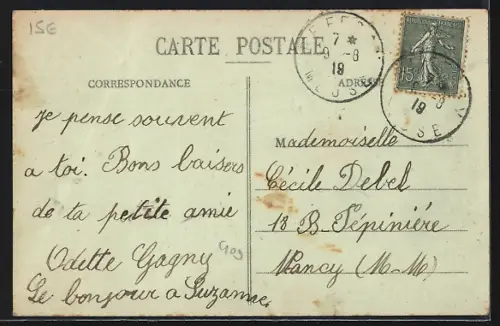 15E
CARTE POSTALE
CORRESPONDANCE
ADRESSE
7 *
9 - 8
19
MEUSE
15
8
19
Je pense souvent
a toi. Bons baisers
de ta petite amie
Odette Gagny
Le bonjour a Suzanne
Mademoiselle
Cécile Debel
18 B. Pépinière
Nancy (M-M)